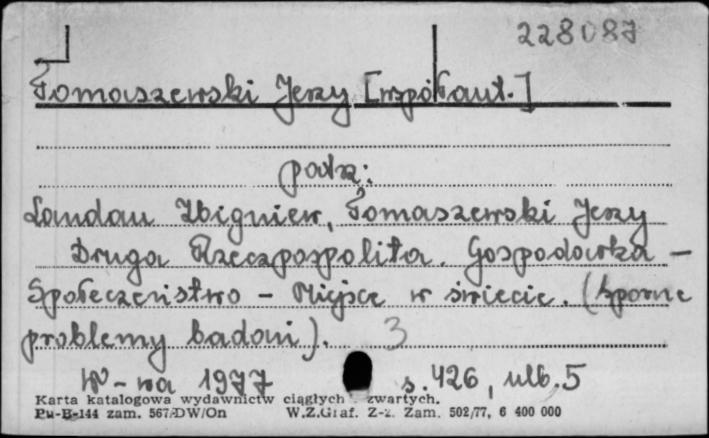 228087
Tomaszewski Jerzy [współaut.]
patrz:
Landau Zbigniew, Tomaszewski Jerzy
Druga Rzeczpospolita. Gospodarka –
Społeczeństwo – Miejsce w świecie. (sporne
problemy badań). 3
W-wa 1977 s. 426, nlb. 5
Karta katalogowa wydawnictw ciągłych zwartych.
Pu-B-144 zam. 567/DW/On W.Z.Graf. Z-z. Zam. 502/77, 6 400 000